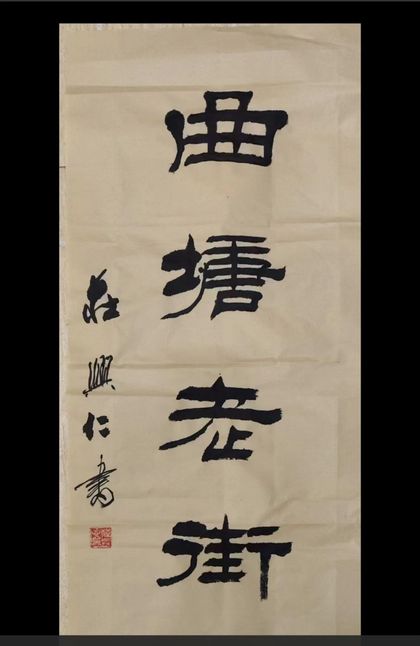 曲塘老街
莊興仁書